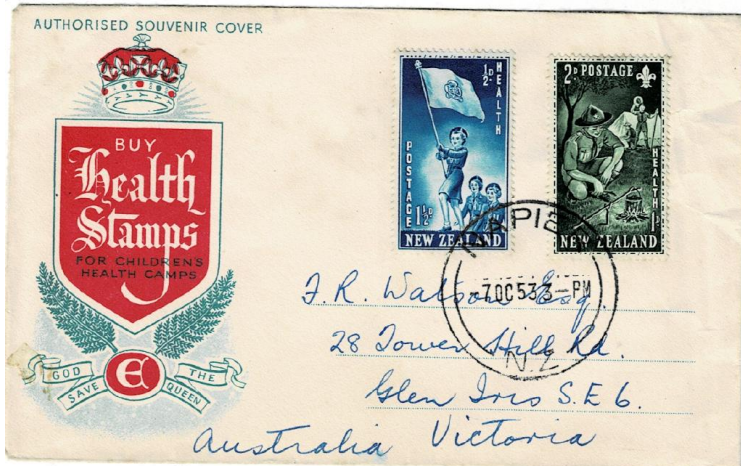 AUTHORISED SOUVENIR COVER
BUY
Health
Stamps
FOR CHILDREN'S
HEALTH CAMPS
GOD
SAVE
E
THE
QUEEN
½D
HEALTH
POSTAGE
1½D
NEW ZEALAND
2D POSTAGE
HEALTH
1D
NEW ZEALAND
NAPIER
-7OC53 3-PM
N.Z
F. R. Watson Esq.
28 Tower Hill Rd.
Glen Iris S.E 6.
Australia Victoria